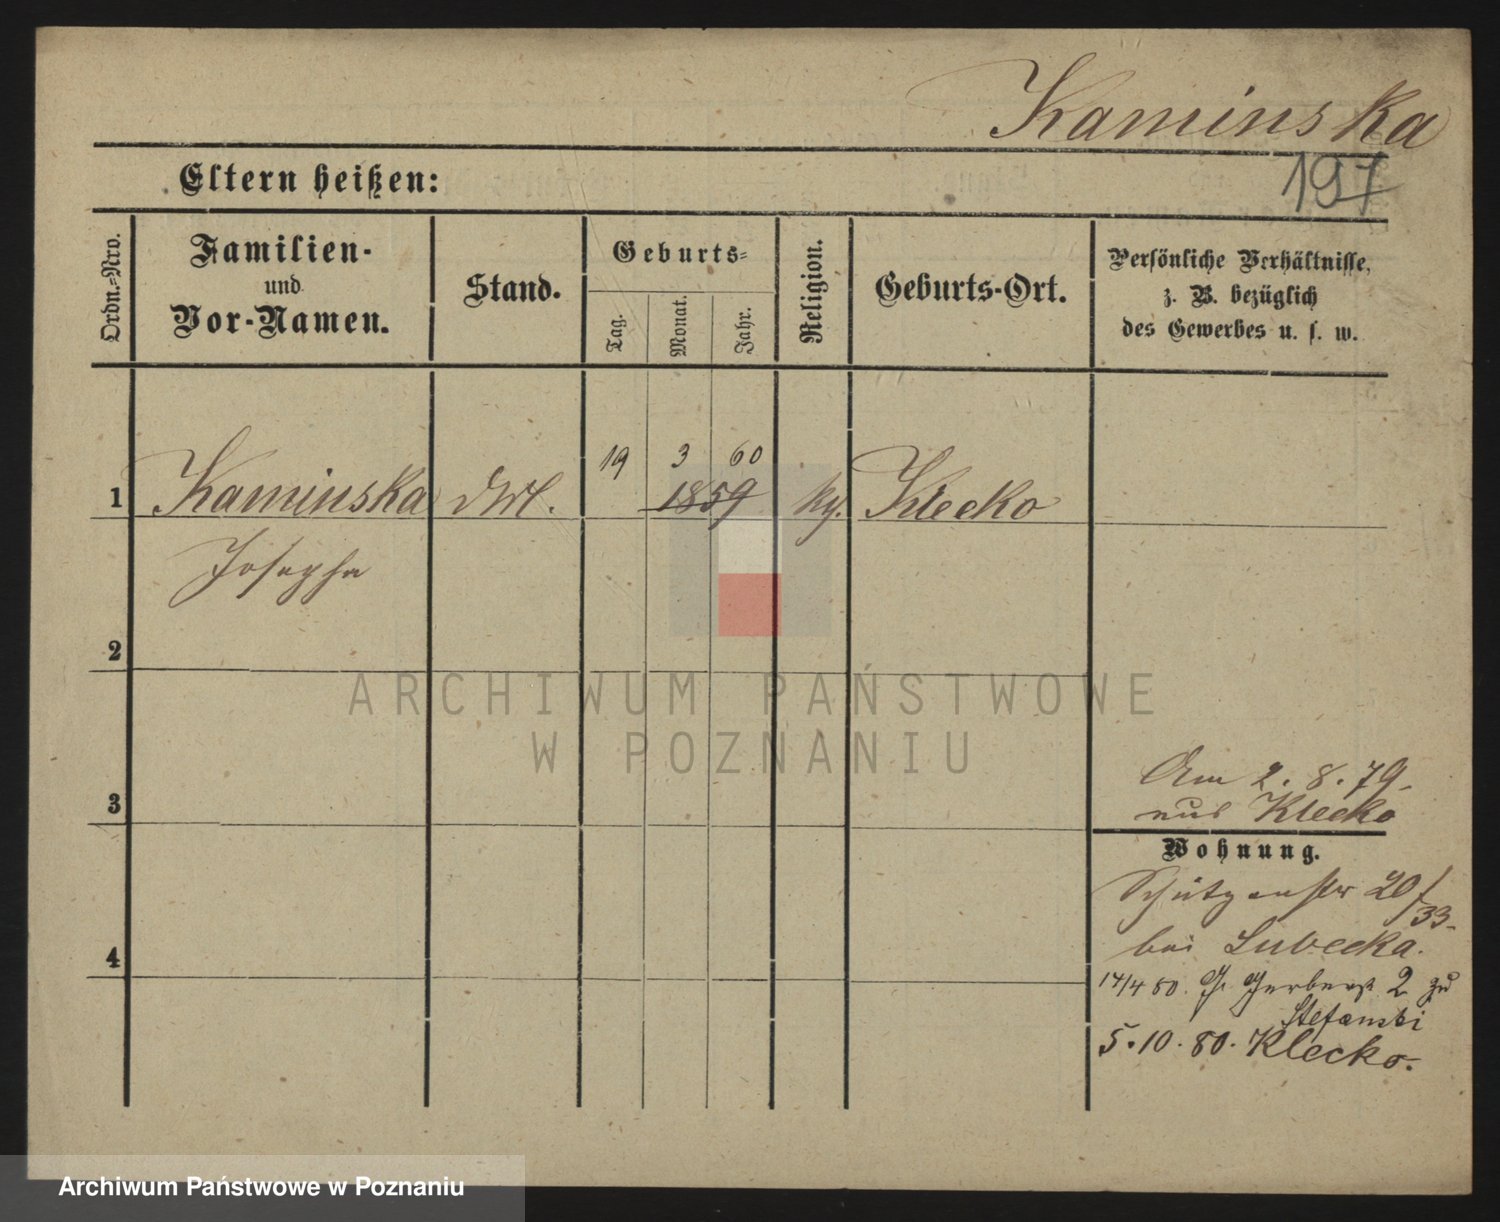 Kaminska
197
Eltern heißen:
Ordn.-Nro.
Familien-
und
Vor-Namen.
Stand.
Geburts-
Tag.
Monat.
Jahr.
Religion.
Geburts-Ort.
Persönliche Verhältnisse,
z. B. bezüglich
des Gewerbes u. s. w.
19 3 60
1 Kaminska 1859 Klecko
Josepha
2
ARCHIWUM PAŃSTWOWE
W POZNANIU
3
Am 2. 8. 79.
aus Klecko
Wohnung.
Schützenstr 20/
33.
bei Lubecka.
4
14/4 80. Gr Gerberst. 2 zu
Stefanski
5. 10. 80. Klecko.
Archiwum Państwowe w Poznaniu